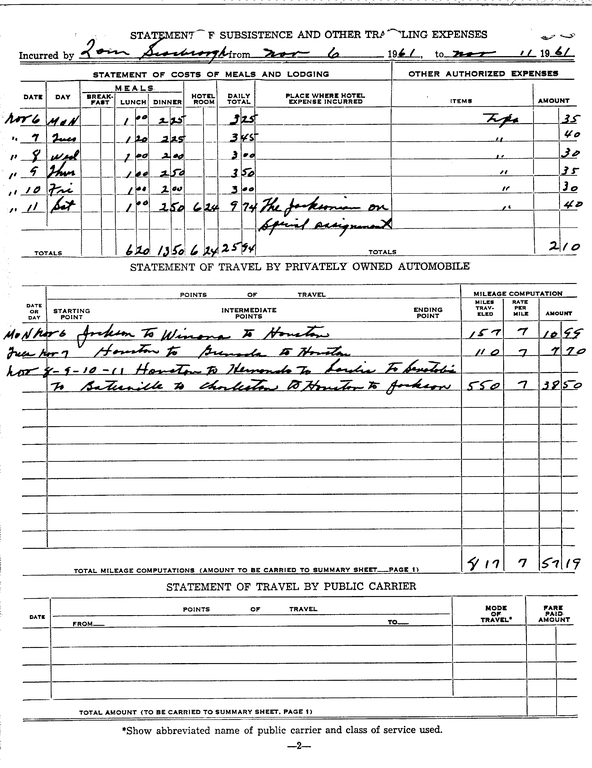 STATEMENT OF SUBSISTENCE AND OTHER TRAVELING EXPENSES
Incurred by Tom Scarbrough from Nov 6 1961, to Nov 11, 1961
STATEMENT OF COSTS OF MEALS AND LODGING OTHER AUTHORIZED EXPENSES
DATE DAY MEALS BREAK-FAST LUNCH DINNER HOTEL ROOM DAILY TOTAL PLACE WHERE HOTEL EXPENSE INCURRED ITEMS AMOUNT
Nov 6 MON 1 00 2 25 3 25 Tips 35
" 7 Tues 1 20 2 25 3 45 " 40
" 8 Wed 1 00 2 00 3 00 " 30
" 9 Thurs 1 00 2 50 3 50 " 35
" 10 Fri 1 00 2 00 3 00 " 30
" 11 Sat 1 00 2 50 6 24 9 74 The Jacksonian on " 40
special assignment
TOTALS 6 20 13 50 6 24 25 94 TOTALS 2 10
STATEMENT OF TRAVEL BY PRIVATELY OWNED AUTOMOBILE
POINTS OF TRAVEL MILEAGE COMPUTATION
DATE OR DAY STARTING POINT INTERMEDIATE POINTS ENDING POINT MILES TRAV-ELED RATE PER MILE AMOUNT
MON Nov 6 Jackson to Winona to Houston 157 7 10 99
Tues Nov 7 Houston to Grenada to Houston 110 7 7 70
Nov 8-9-10-11 Houston to Hernando to Sardis to Senatobia
to Batesville to Charleston to Houston to Jackson 550 7 38 50
TOTAL MILEAGE COMPUTATIONS (AMOUNT TO BE CARRIED TO SUMMARY SHEET PAGE 1) 817 7 57 19
STATEMENT OF TRAVEL BY PUBLIC CARRIER
DATE POINTS OF TRAVEL MODE OF TRAVEL* FARE PAID AMOUNT
FROM TO
TOTAL AMOUNT (TO BE CARRIED TO SUMMARY SHEET, PAGE 1)
*Show abbreviated name of public carrier and class of service used.
—2—